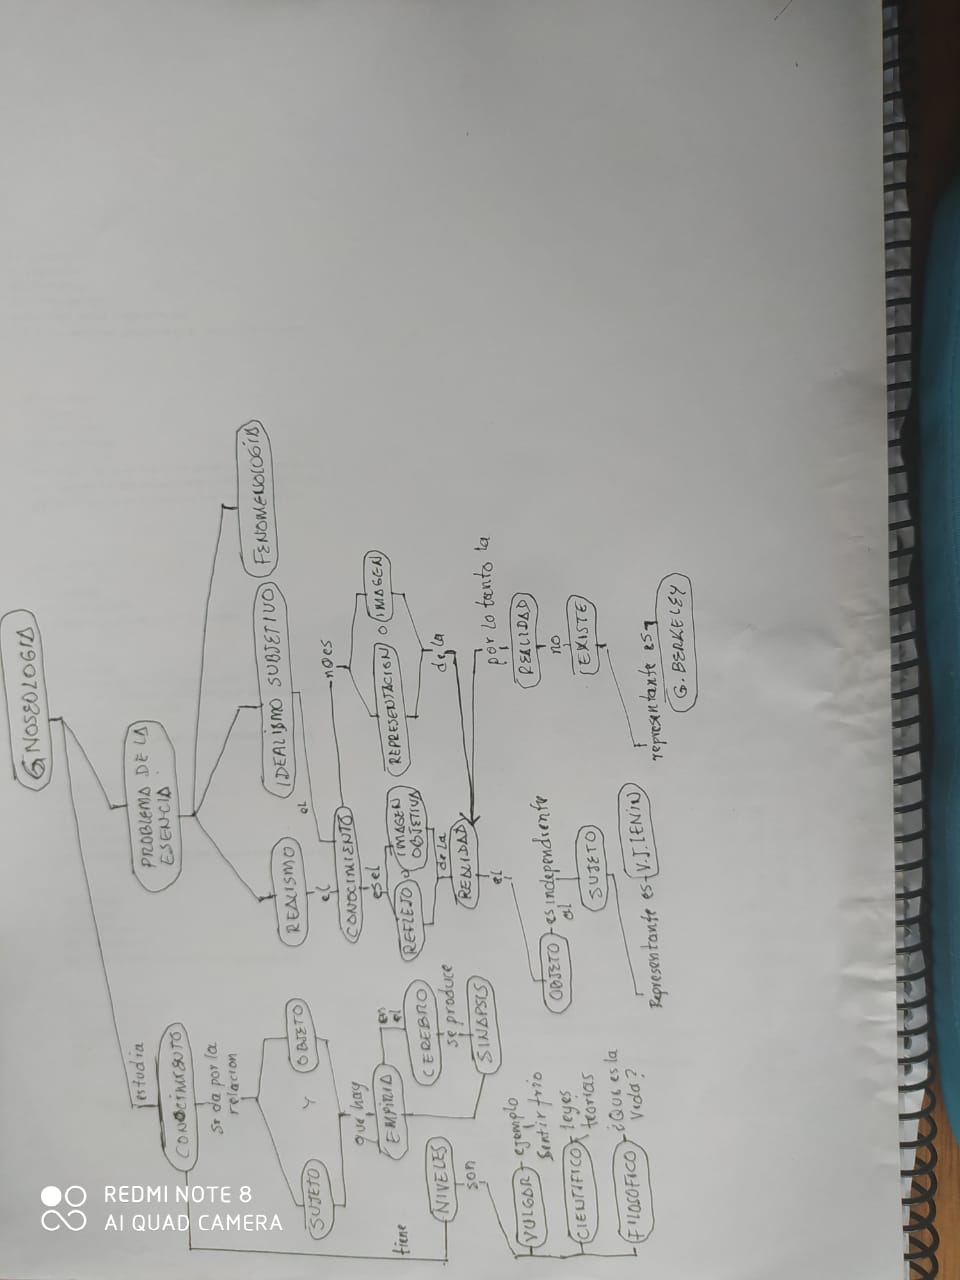 GNOSEOLOGIA
estudia
PROBLEMA DE LA
ESENCIA
CONOCIMIENTO
se da por la
relacion
SUJETO
Y
OBJETO
que hay
EMPIRIA
en
el
CEREBRO
se produce
SINAPSIS
tiene
NIVELES
son
VULGAR
ejemplo
sentir frio
CIENTIFICO
leyes
teorias
FILOSOFICO
¿Que es la
vida?
REALISMO
IDEALISMO SUBJETIVO
FENOMENOLOGIA
el
el
CONOCIMIENTO
no es
es el
REFLEJO
o
IMAGEN
OBJETIVA
de la
REALIDAD
el
OBJETO
es independiente
al
SUJETO
Representante es
V.I. LENIN
REPRESENTACION
O
IMAGEN
de la
por lo tanto la
REALIDAD
no
EXISTE
representante es
G. BERKELEY
REDMI NOTE 8
AI QUAD CAMERA